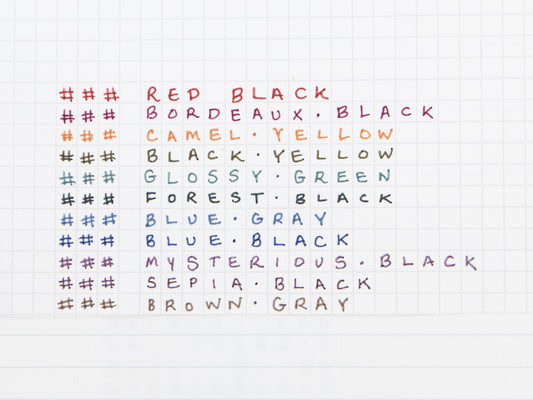 ### RED BLACK
### BORDEAUX·BLACK
### CAMEL·YELLOW
### BLACK·YELLOW
### GLOSSY·GREEN
### FOREST·BLACK
### BLUE·GRAY
### BLUE·BLACK
### MYSTERIOUS·BLACK
### SEPIA·BLACK
### BROWN·GRAY